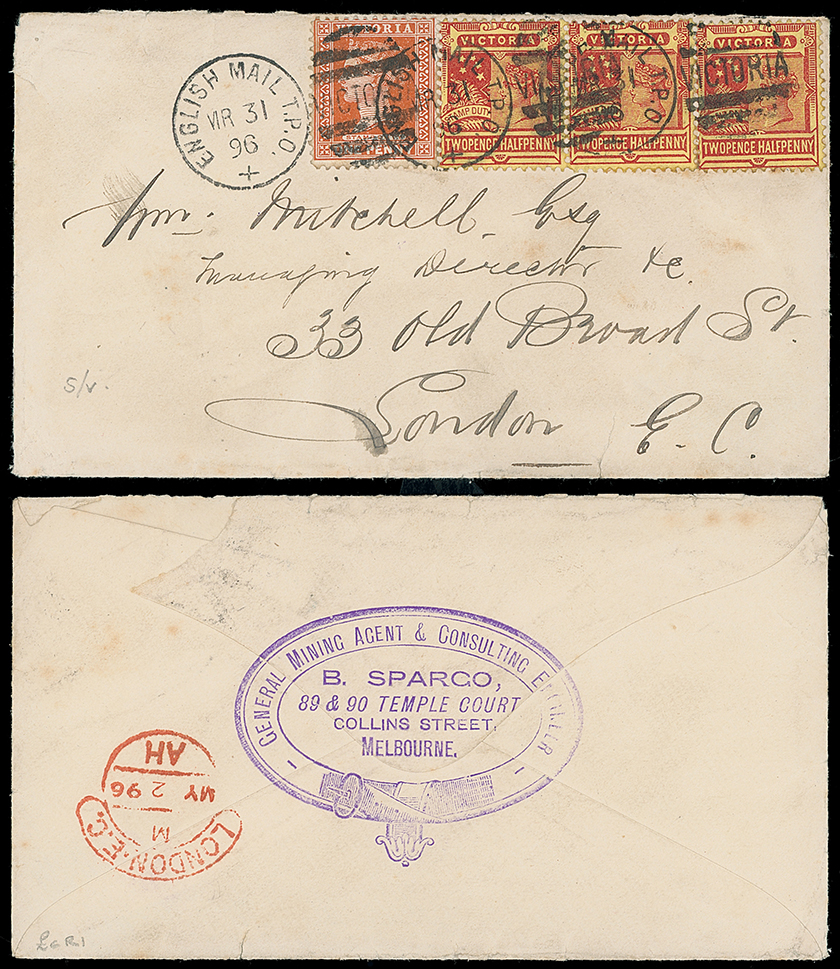 ENGLISH MAIL T.P.O.
MR 31
96
VICTORIA
VICTORIA
VICTORIA
TWOPENCE HALFPENNY
TWOPENCE HALFPENNY
TWOPENCE HALFPENNY
VICTORIA
Wm. Mitchell Esq
Managing Director &c.
33 Old Broad St.
London E. C.
S/v.
GENERAL MINING AGENT & CONSULTING
B. SPARGO,
89 & 90 TEMPLE COURT
COLLINS STREET,
MELBOURNE.
LONDON·E.C.
M
MY 2 96
AH